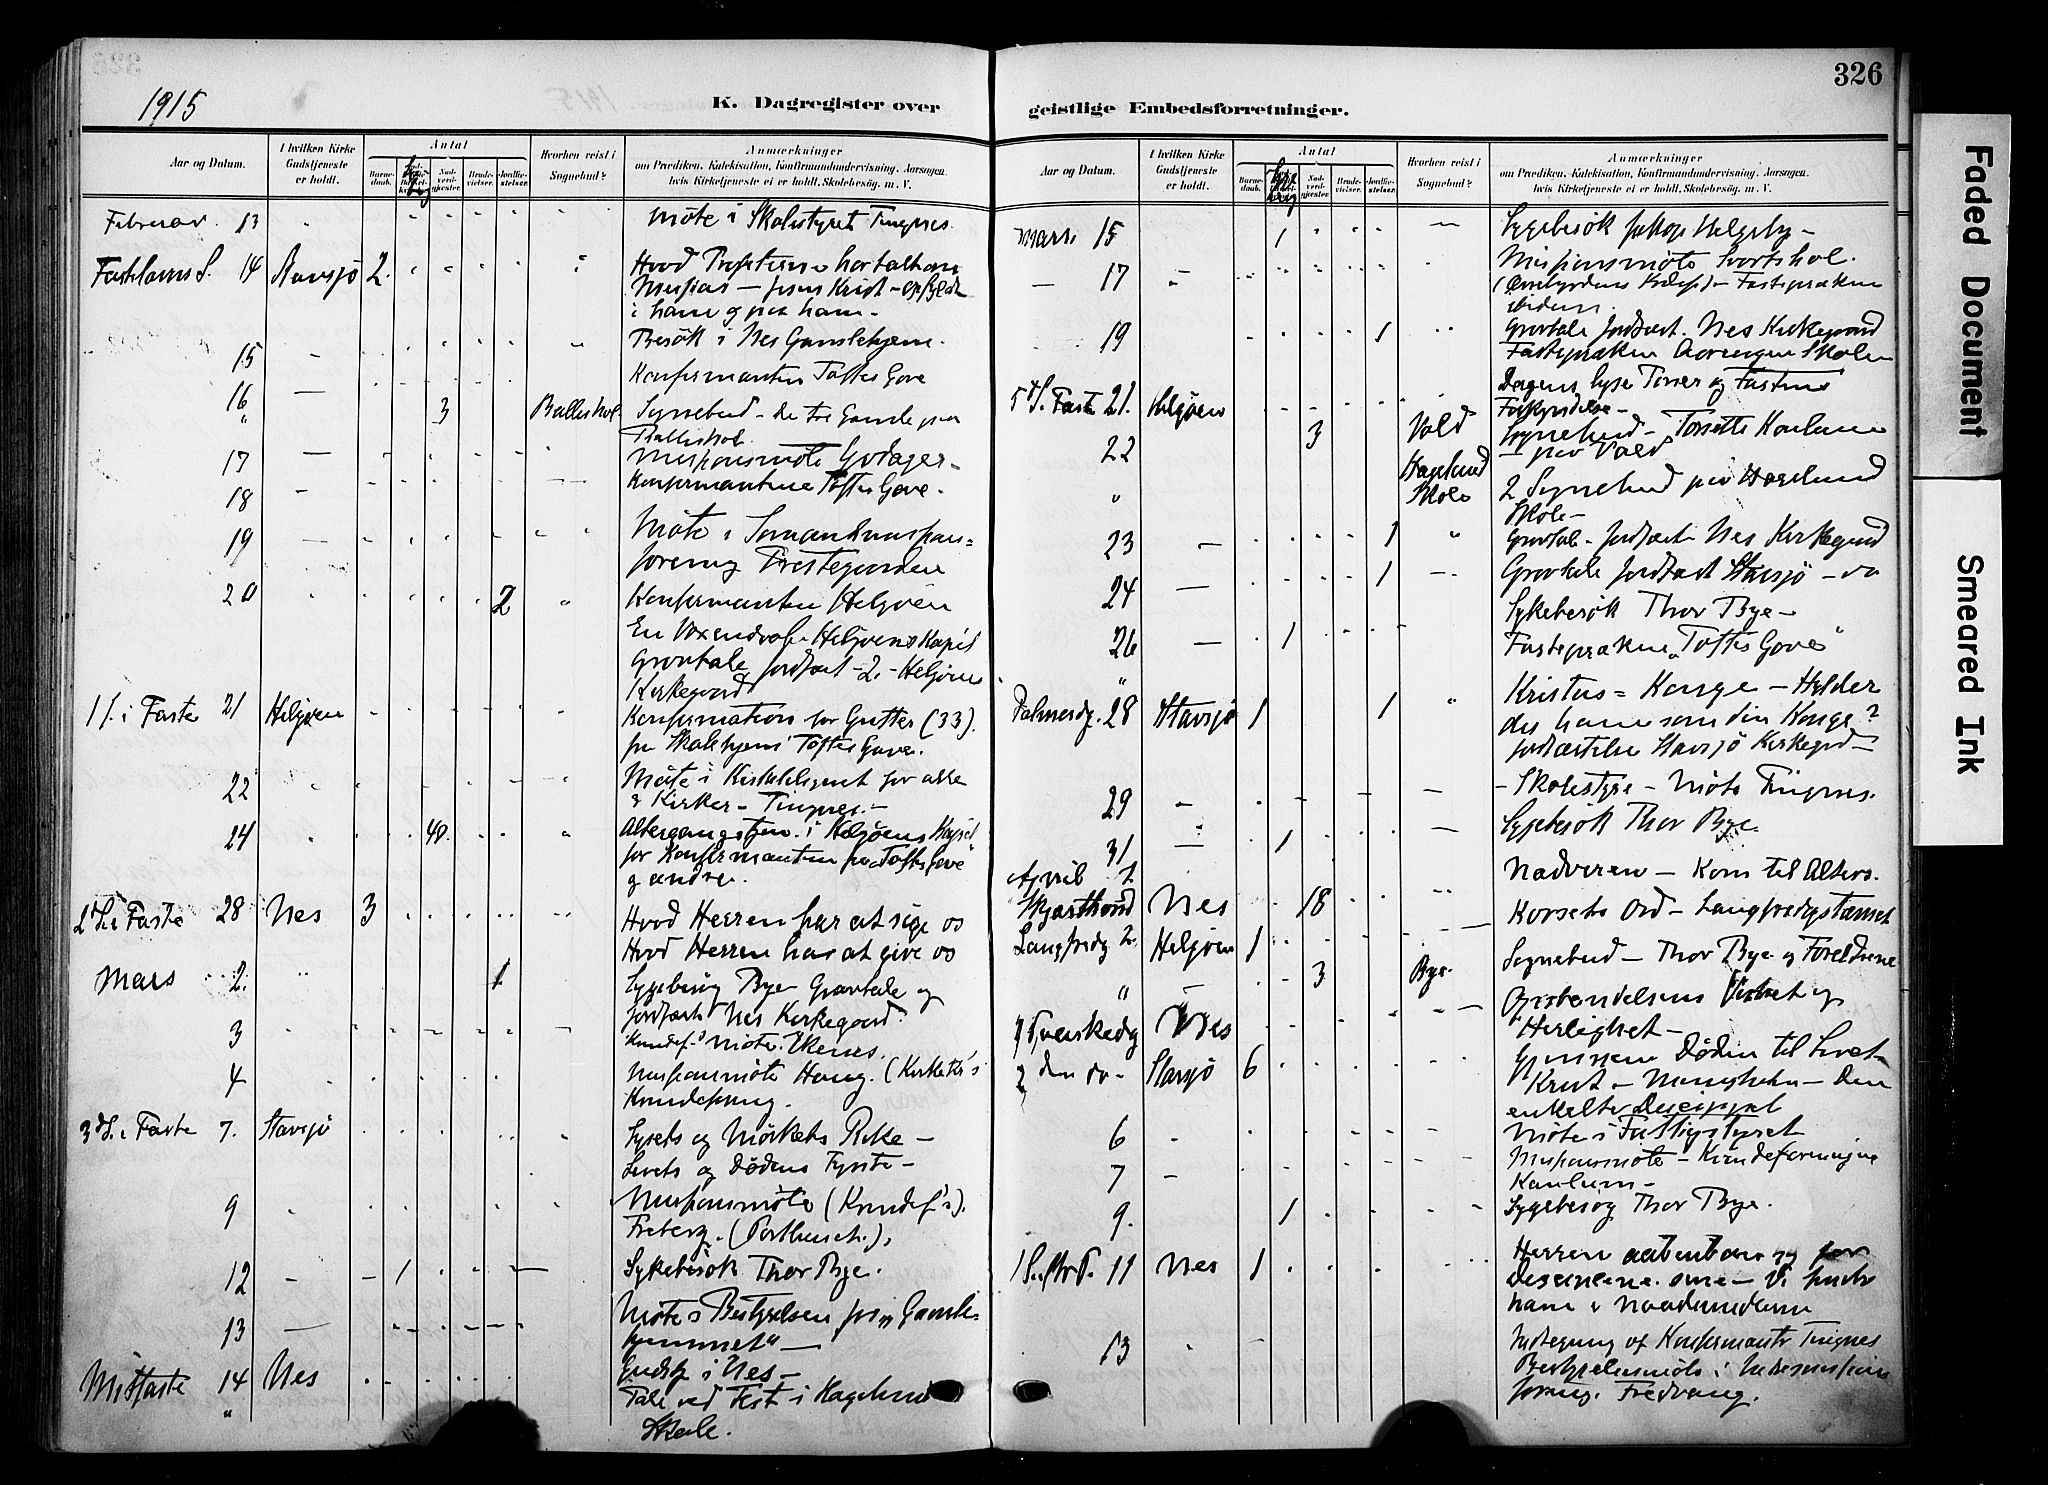 326
1915
K. Dagregister over
geistlige Embedsforretninger.
Aar og Datum.
I hvilken Kirke Gudstjeneste er holdt.
Antal
Barnedaab.
Nadverdgjester.
Brudevielser.
Jordfæstelser.
Hvorhen reist i Sognebud?
Anmærkninger
om Prædiken, Katekisation, Konfirmandundervisning, Aarsagen, hvis Kirketjeneste ei er holdt, Skolebesøg, m. V.
Februar 13 Möte i Skolestyret Tingnes.
Fastelavns S. 14 Stavsjö 2. Hvad Profeterne har talt om
Messias – Jesus Krist – opfyldt
i ham og paa ham.
15 Besök i Nes Gamlehjem.
Konfirmanten Toftes Gave
16 3 Balleshol Sognebud – De tre Gamle paa
Balleshol.
17 Missionsmöte Godager –
18 Konfirmantene Toftes Gave.
19 Möte i
forening Prestegarden
20 2 Konfirmanten Helgöen
En Voxendaab Helgöens Kapel
Gravtale jordfæst – 2. – Helgöens
Kirkegaard
1 S. i Faste 21 Helgöen Konfirmation for Gutter (33).
fra Skolehjem Toftes Gave.
22 Möte i for alle
3 Kirker – Tingnes. –
24 40. Altergangstjen. i Helgöens Kapel
for Konfirmanten fra "Toftes Gave"
og andre.
2 S. i Faste 28 Nes 3 Hvad Herren har at sige os
Hvad Herren har at give os
Mars 2. 1 Sygebesög Bye Gravtale og
jordfæst Nes Kirkegaard.
3 Kvindef. möte. Ekenes.
4 Missionsmöte Haug. (Kirkekr's
Kvindeforening.
3 S. i Faste 7. Stavsjö Lysets og Mörkets Rike –
Livets og Dödens Fyrste –
9 Missionsmöte (Kvindef's).
Freberg.
12 1 Sykebesök Thor Bye.
13 Möte i Bestyrelsen for "Gamle-
hjemmet" –
Midfaste 14 Nes Gudstj. i Nes –
" Tale ved Fest i Hagelund
Skole.
Aar og Datum.
I hvilken Kirke Gudstjeneste er holdt.
Antal
Barnedaab.
Nadverdgjester.
Brudevielser.
Jordfæstelser.
Hvorhen reist i Sognebud?
Anmærkninger
om Prædiken, Katekisation, Konfirmandundervisning, Aarsagen, hvis Kirketjeneste ei er holdt, Skolebesøg, m. V.
Mars 15 1 Sygebesök Jakop Helgeby –
17 Missionsmöte
Fastepræken
19 1 Gravtale jordfæst. Nes Kirkegaard
Fastepræken Skole
5 S. Faste 21. Helgöen Dagens Lyse Timer og Fastens
Forkyndelse –
22 3 Vold Sognebud –
paa Vold
" Hagelund Skole 2 Sognebud paa Hagelund
Skole –
23 1 Gravtale jordfæst Nes Kirkegaard
24 1 Gravtale jordfæst Stavsjö – do
Sykebesök Thor Bye –
26 1 Fasteprækен "Toftes Gave"
Palmesdg. 28 Stavsjö 1 1 Kristus = Konge – Hylder
du ham som din Konge?
jordfæstelse Stavsjö Kirkegrd –
29 – Skolestyre – Möte Tingnes.
31 1 Sygebesök Thor Bye.
April 1. Nadveren – Kom til Alters.
Skjærthorsd Nes 18 Korsets Ord –
Langfredg 2. Helgöen 1
" 3 Bye. Sognebud – Thor Bye og Foreldrene
1 Paaskedg Nes Opstandelsens Virkelighet og
Herlighet –
2 den do – Stavsjö 6 Gjennem Döden til Livet –
Krist – Menigheten – Den
enkelte Discippel
6 Möte i Fattigstyret
7 Missionsmöte – Kvindeforeningne
Kaulum –
9. 1 Sygebesög Thor Bye.
1 S. e. P. 11 Nes 1 Herren aabenbarer sig for
Disciplene sine – Vi finder
ham i Naademidlene
13 Indtegning af Konfirmanter Tingnes
Bestyrelsesmöte i Indremissions
foreng. Fredvang.
Faded Document
Smeared Ink